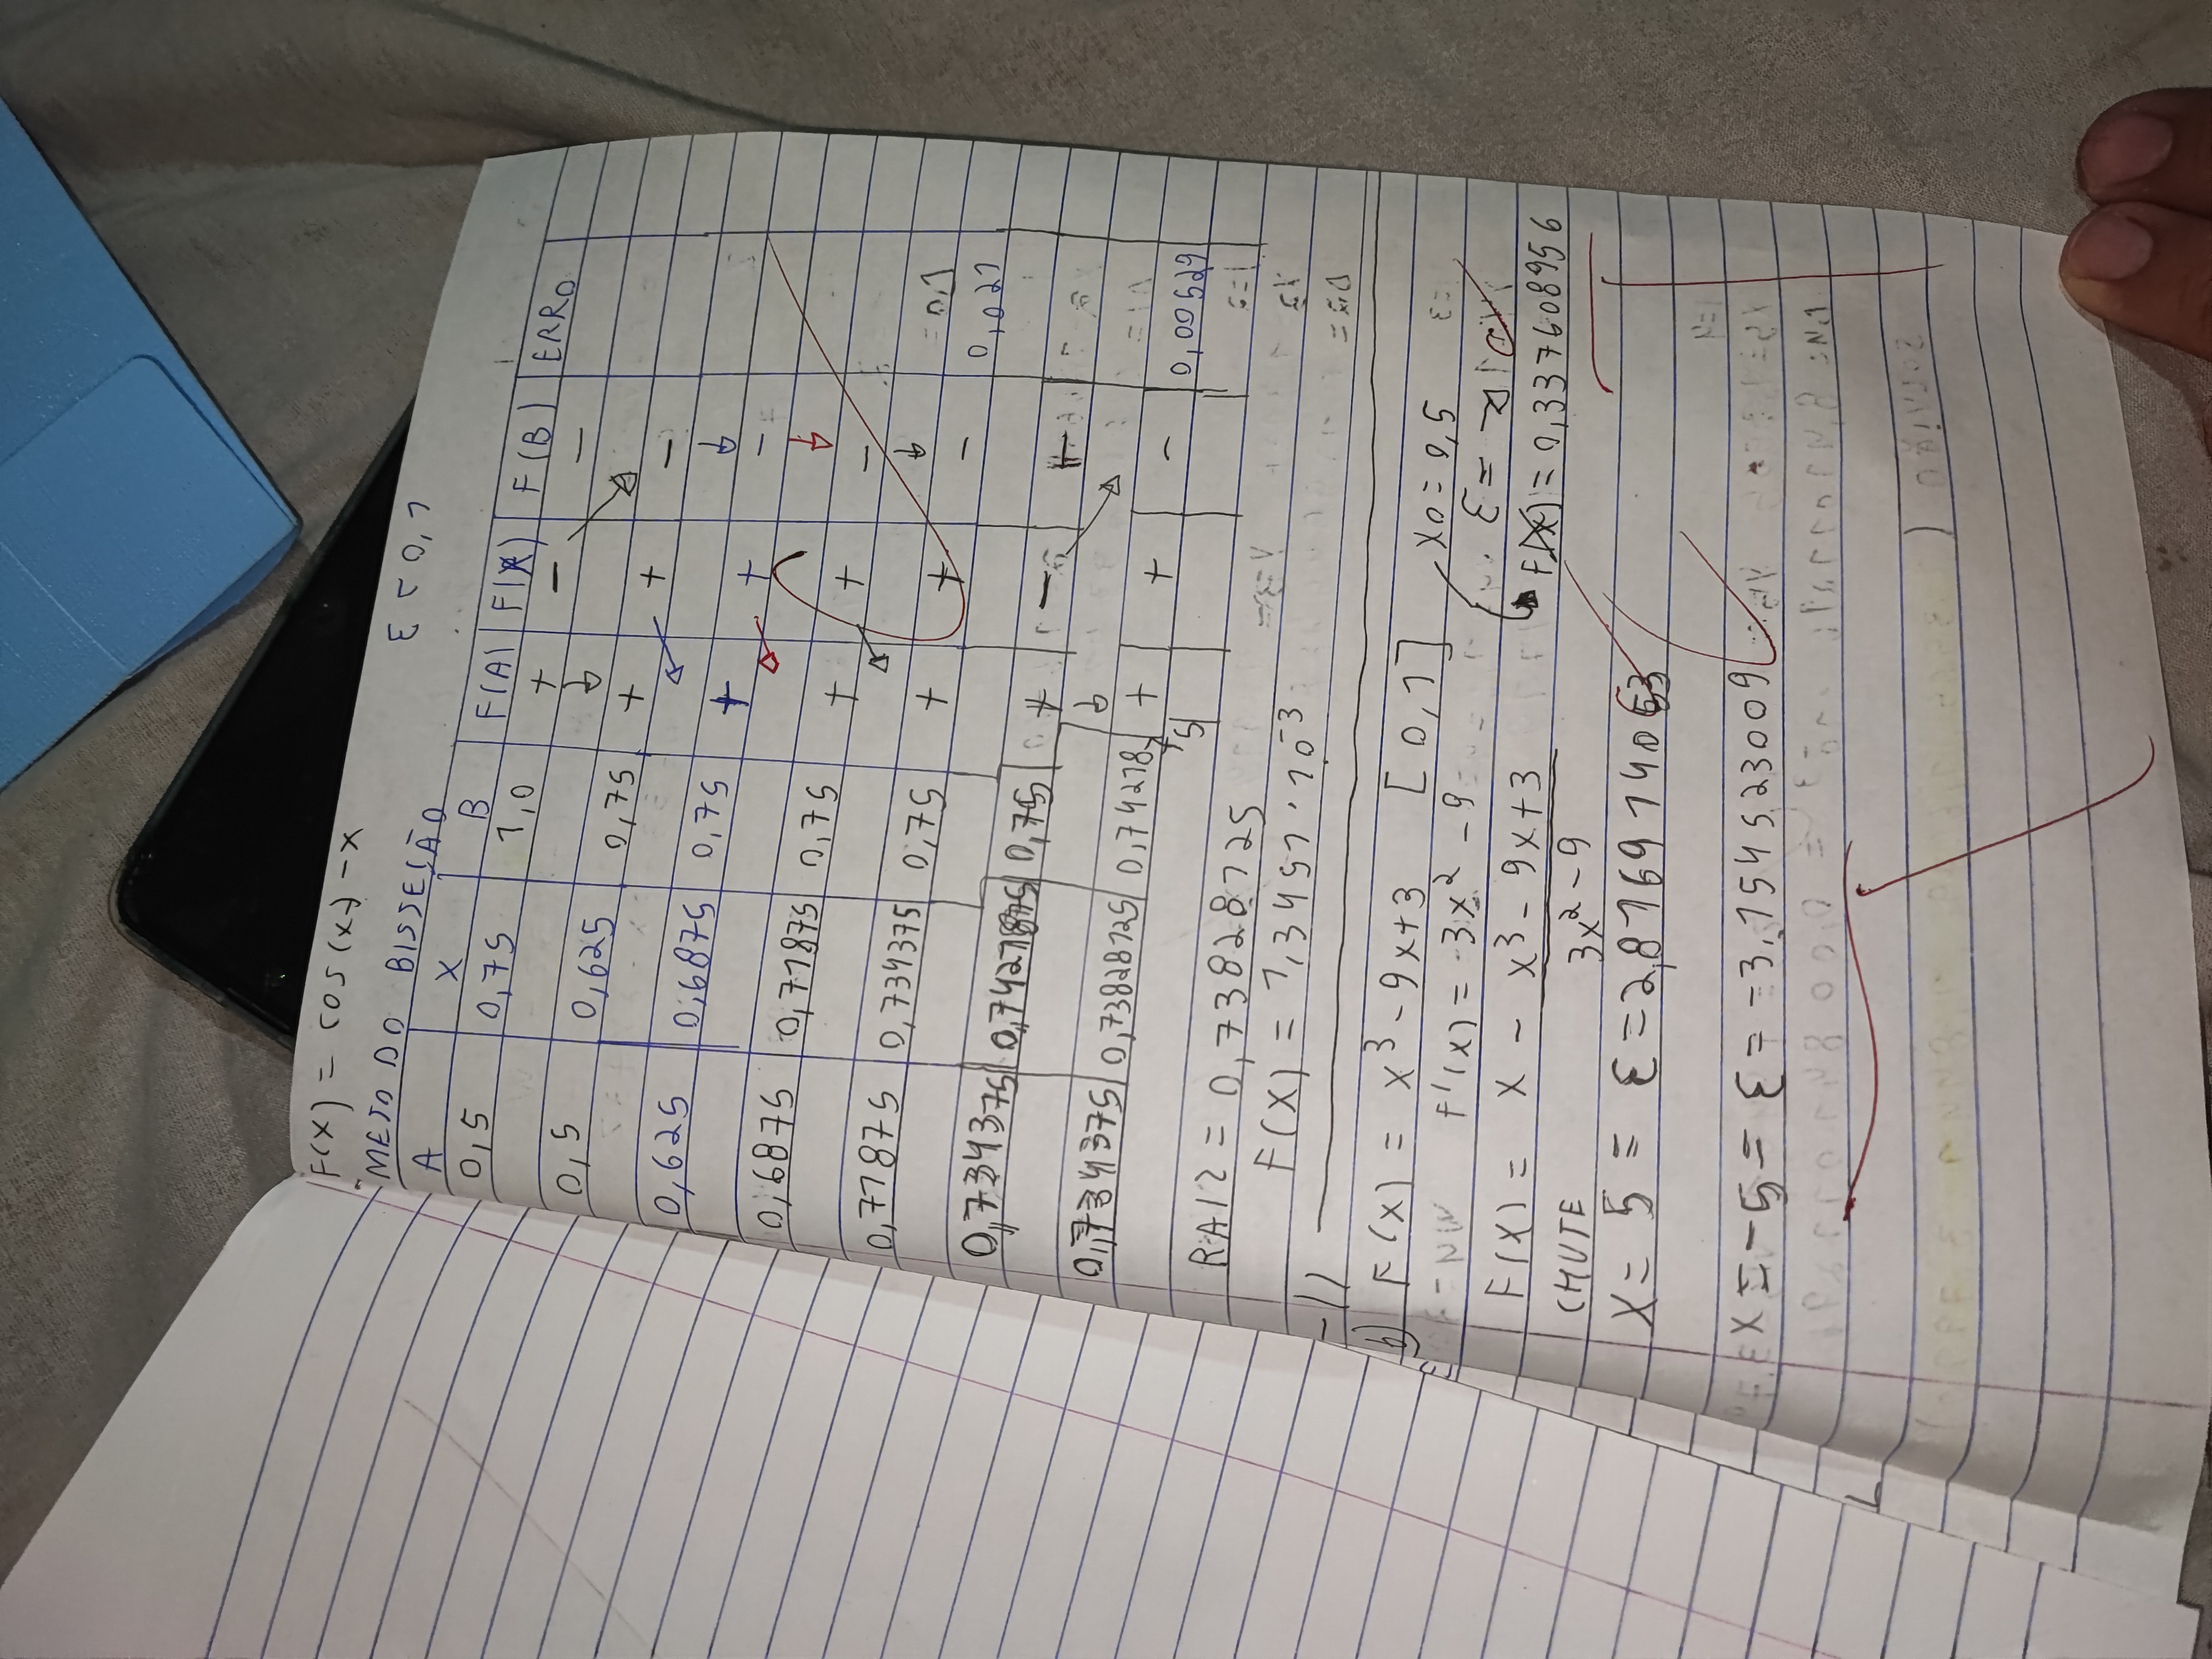 F(X) = cos(x) - x
METODO BISSEÇÃO ε < 0,1
A X B F(A) F(X) F(B) ERRO
0,5 0,75 1,0 + - -
0,5 0,625 0,75 + + -
0,625 0,6875 0,75 + + -
0,6875 0,71875 0,75 + + -
0,71875 0,734375 0,75 + + - 0,021
0,734375 0,7421875 0,75 + -
0,734375 0,73828125 0,7421875 + + - 0,00529
RAIZ = 0,73828125
F(X) = 1,3451 · 10⁻³
b) F(X) = x³ - 9x + 3 [0,1]
X0 = 0,5
F'(X) = 3x² - 9
F(X) = x - x³ - 9x + 3
3x² - 9
F(X) = 0,337608956
CHUTE
X = 5 = ε = 2,816974063
X = -5 = ε = -3,154523009